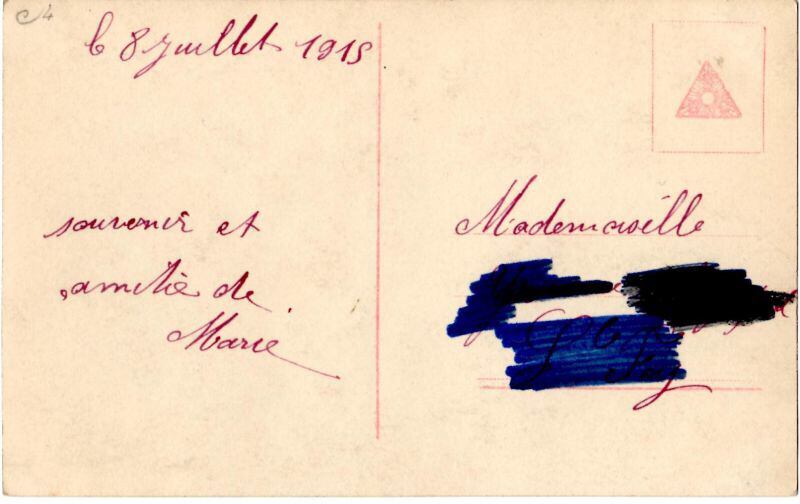 le 8 juillet 1915
souvenir et
amitié de
Marie
Mademoiselle